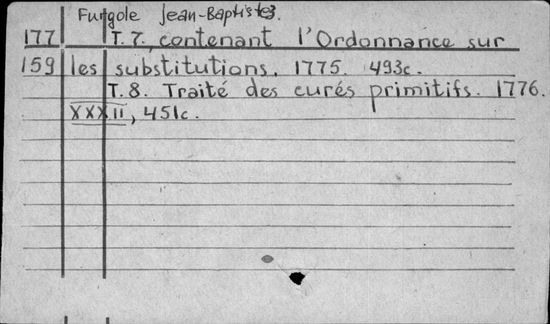 Furgole Jean-Baptiste 3.
177 T. 7., contenant l'Ordonnance sur
159 les substitutions. 1775. 493c.
T. 8. Traité des curés primitifs. 1776.
XXXII, 451c.